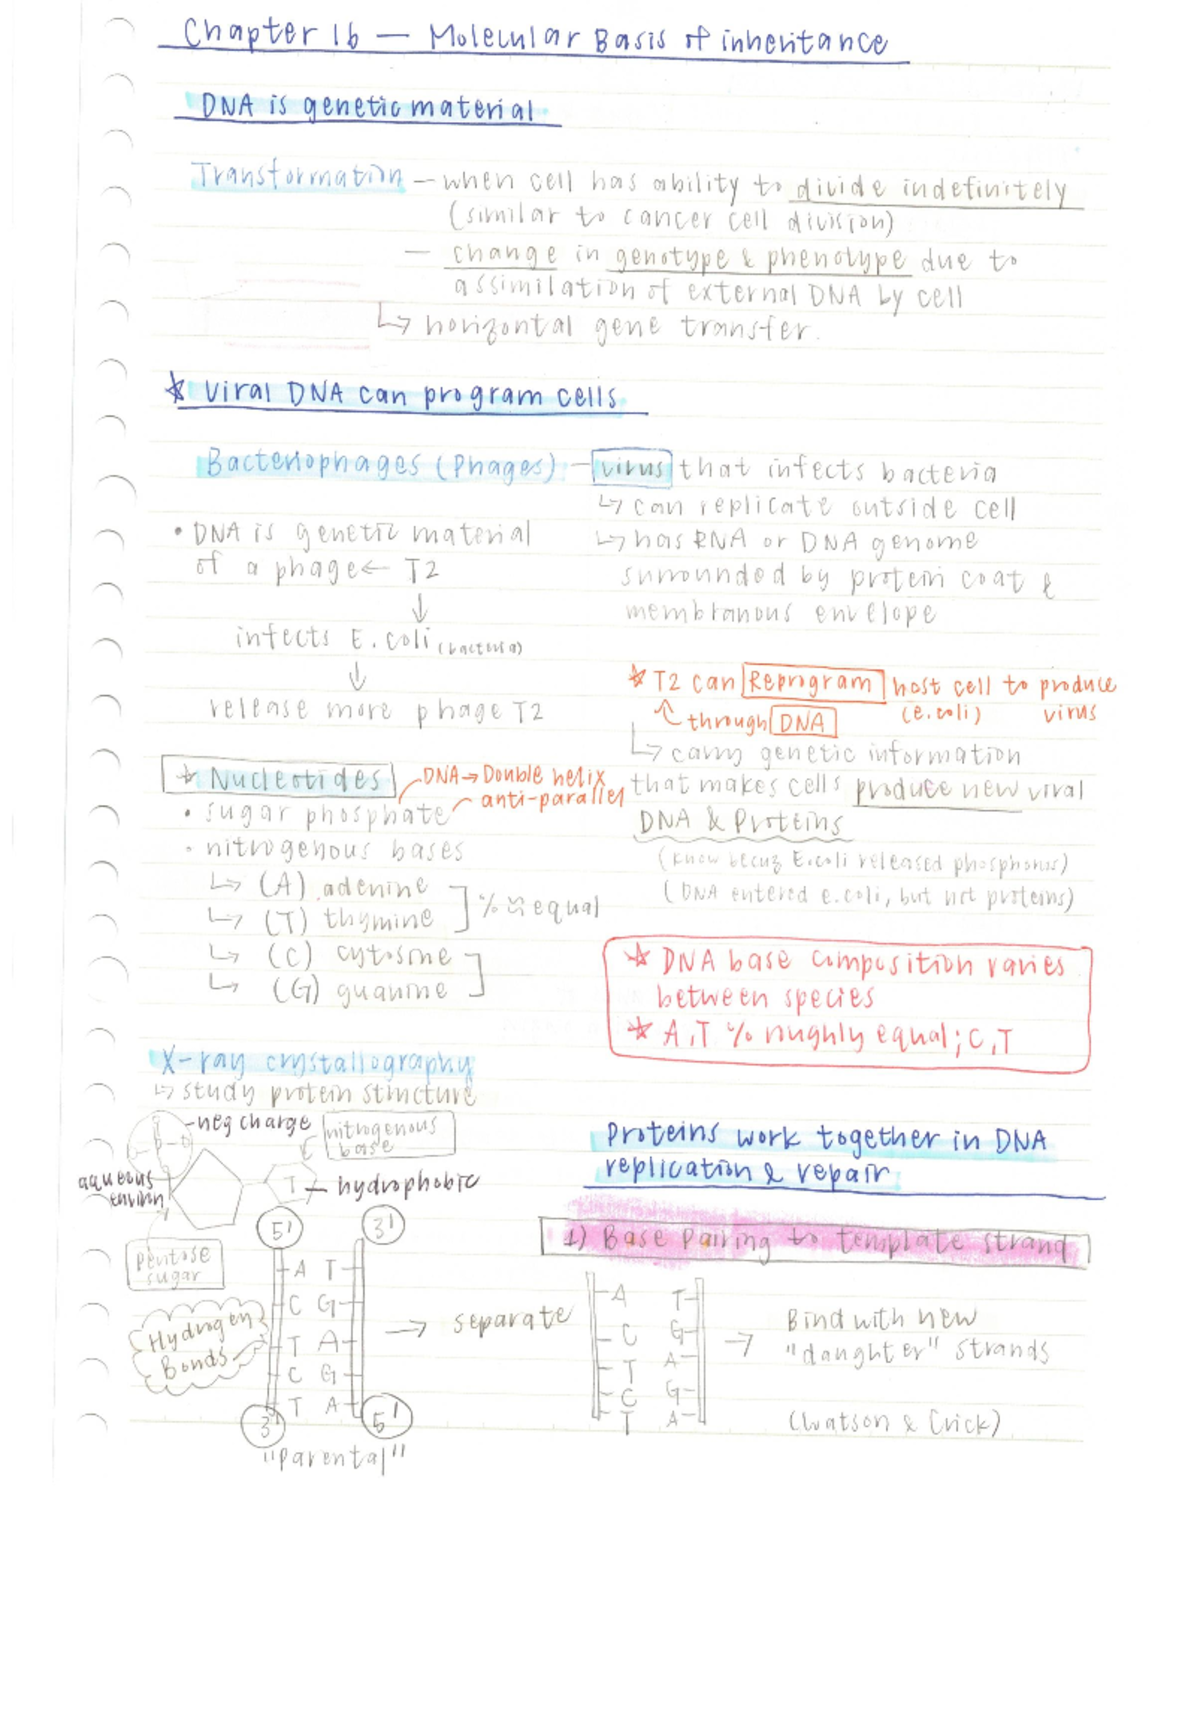 Chapter 16 — Molecular Basis of inheritance
DNA is genetic material
Transformation — when cell has ability to divide indefinitely
(similar to cancer cell division)
— change in genotype & phenotype due to
assimilation of external DNA by cell
↳ horizontal gene transfer.
* Viral DNA can program cells
Bacteriophages (Phages) — virus that infects bacteria
↳ can replicate outside cell
↳ has RNA or DNA genome
surrounded by protein coat &
membranous envelope
• DNA is genetic material
of a phage ← T2
↓
infects E. coli (bacteria)
↓
release more phage T2
* T2 can Reprogram host cell to produce
(e.coli) virus
through DNA
↳ carry genetic information
that makes cells produce new viral
DNA & Proteins
(know becuz E.coli released phosphorus)
(DNA entered e.coli, but not proteins)
* Nucleotides
DNA → Double helix
anti-parallel
• sugar phosphate
• nitrogenous bases
↳ (A) adenine
↳ (T) thymine
] % ≈ equal
↳ (C) cytosine
↳ (G) guanine ]
* DNA base composition varies
between species
* A,T % roughly equal; C,T
X-ray crystallography
↳ study protein structure
neg charge
nitrogenous
base
aqueous
T — hydrophobic
pentose
sugar
5' 3'
A T
C G
T A
C G
T A
3' 5'
Hydrogen
Bonds
"Parental"
→ separate
Proteins work together in DNA
replication & repair
1) Base Pairing to template strand
A T
C G
T A
C G
T A
→ Bind with new
"daughter" strands
(Watson & Crick)